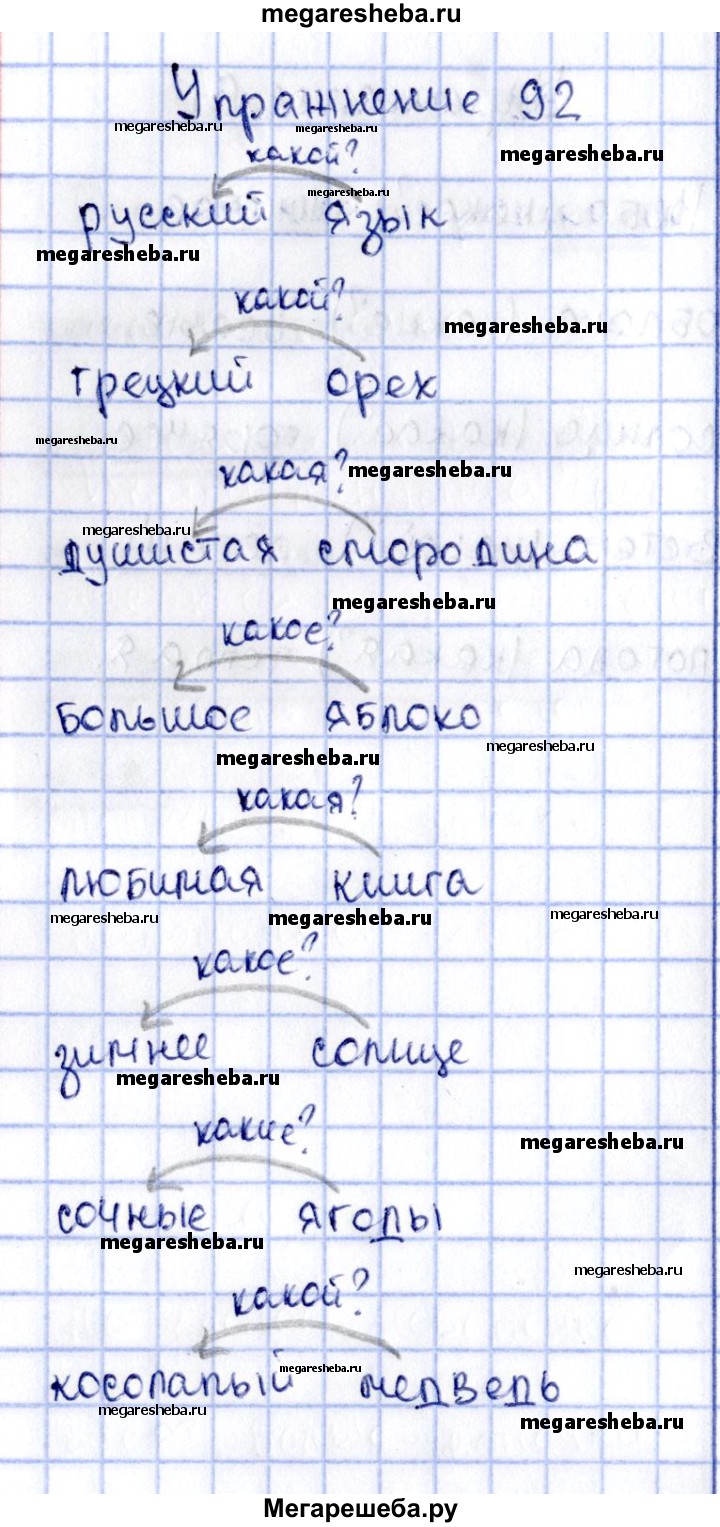 megaresheba.ru
Упражнение 92
megaresheba.ru
megaresheba.ru
какой?
megaresheba.ru
megaresheba.ru
русский язык
megaresheba.ru
какой?
megaresheba.ru
грецкий орех
megaresheba.ru
какая?
megaresheba.ru
megaresheba.ru
душистая смородина
megaresheba.ru
какое?
большое яблоко
megaresheba.ru
megaresheba.ru
какая?
любимая книга
megaresheba.ru
megaresheba.ru
megaresheba.ru
какое?
зимнее солнце
megaresheba.ru
какие?
megaresheba.ru
сочные ягоды
megaresheba.ru
megaresheba.ru
какой?
megaresheba.ru
косолапый медведь
megaresheba.ru
megaresheba.ru
Мегарешеба.ру